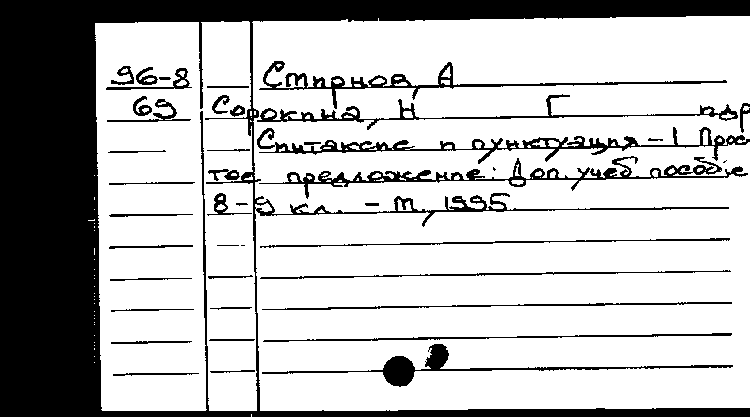 96-8 Смирнов, А
69 Сорокина, Н Г пдр
Синтаксис и пунктуация - 1 Прос
тое предложение: Доп. учеб пособие
8-9 кл. - М, 1995